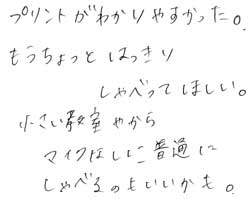 プリントがわかりやすかった。
もうちょっとはっきり
しゃべってほしい。
小さい教室やから
マイクなしに普通に
しゃべるのもいいかも。